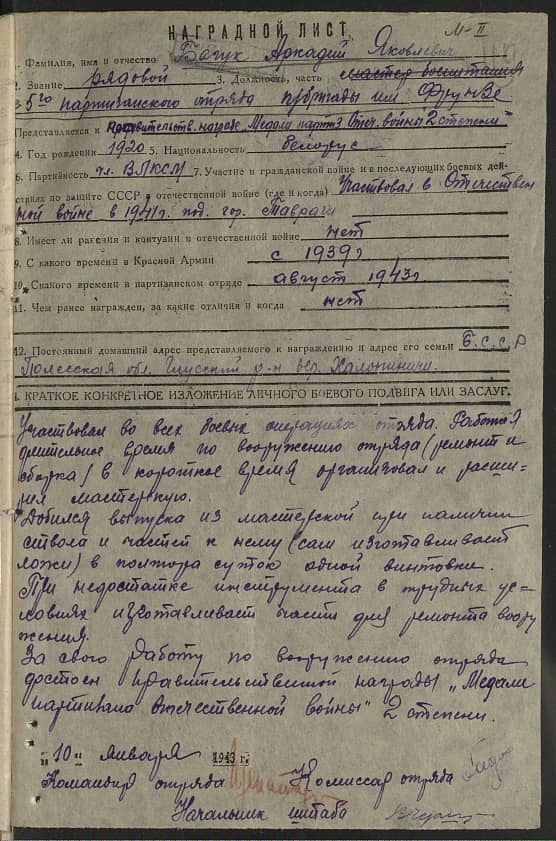 М-II
НАГРАДНОЙ ЛИСТ
1. Фамилия, имя и отчество Бачук Аркадий Яковлевич
2. Звание рядовой 3. Должность, часть мастер
5го партизанского отряда п/бригады им Фрунзе
Представляется к Правительств. награде Медали парт-з Отеч. войны 2 степени"
4. Год рождения 1920 5. Национальность белорус
6. Партийность чл. ВЛКСМ 7. Участие в гражданской войне и в последующих боевых дей-
ствиях по защите СССР и отечественной войне (где и когда) Участвовал в Отечествен
ной войне в 1941г. под. гор. Тавраги
8. Имеет ли ранения и контузии в отечественной войне нет
9. С какого времени в Красной Армии с 1939г
10. С какого времени в партизанском отряде август 1943г
11. Чем ранее награжден, за какие отличия и когда нет
12. Постоянный домашний адрес представляемого к награждению и адрес его семьи Б.С.С.Р
Полесская обл. Глусский р-н вер.
I. КРАТКОЕ КОНКРЕТНОЕ ИЗЛОЖЕНИЕ ЛИЧНОГО БОЕВОГО ПОДВИГА ИЛИ ЗАСЛУГ.
Участвовал во всех боевых операциях отряда. Работая
длительное время по вооружению отряда (ремонт и
сборка) в короткое время организовал и расши-
рил мастерскую.
Добился выпуска из мастерской при наличии
ствола и частей к нему (сам изготавливает
ложи) в полтора суток одной винтовки.
При недостатке инструмента в трудных ус-
ловиях изготавливает части для ремонта воору
жения.
За свою работу по вооружению отряда
достоен правительственной награды „Медали
партизана отечественной войны" 2 степени.
"10" января 1943 г.
Командир отряда Комиссар отряда
Начальник штаба